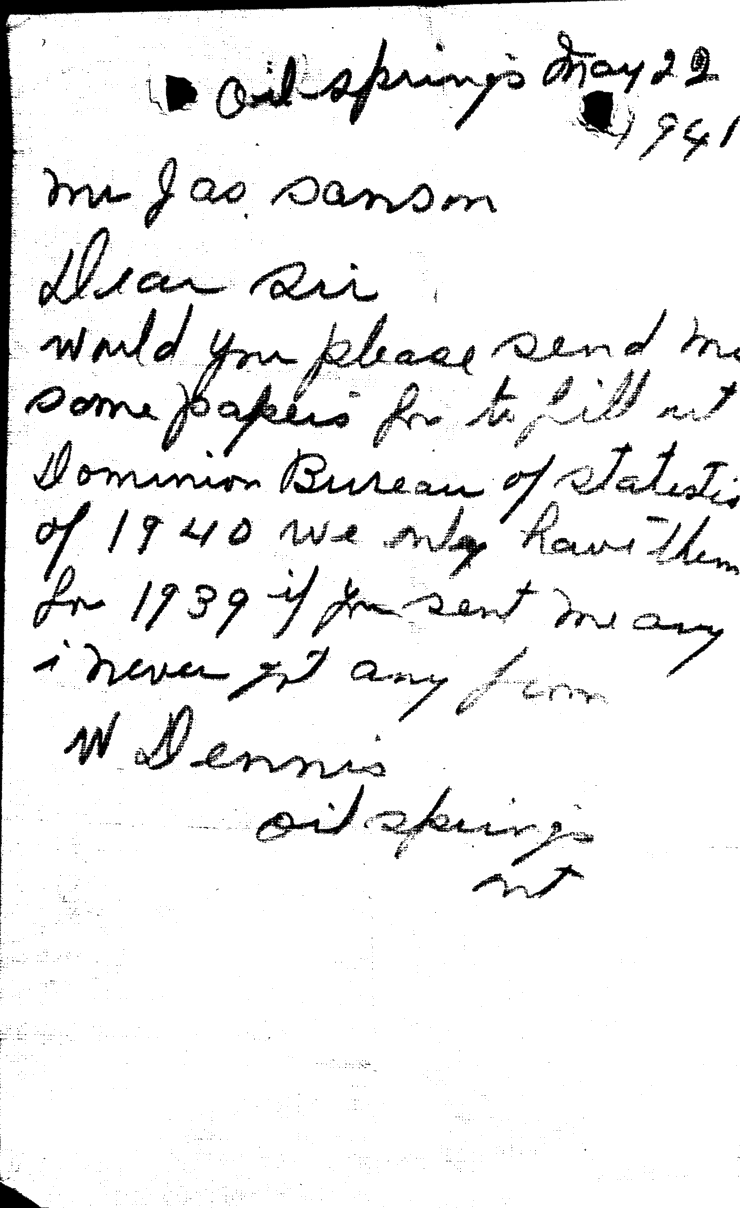 Oil springs May 22
1941
Mr Jas. Sanson
Dear Sir
would you please send me
some papers for to fill out
Dominion Bureau of statestis
of 1940 we only have them
for 1939 if you sent me any
i never got any from
W Dennis
oil springs
ont